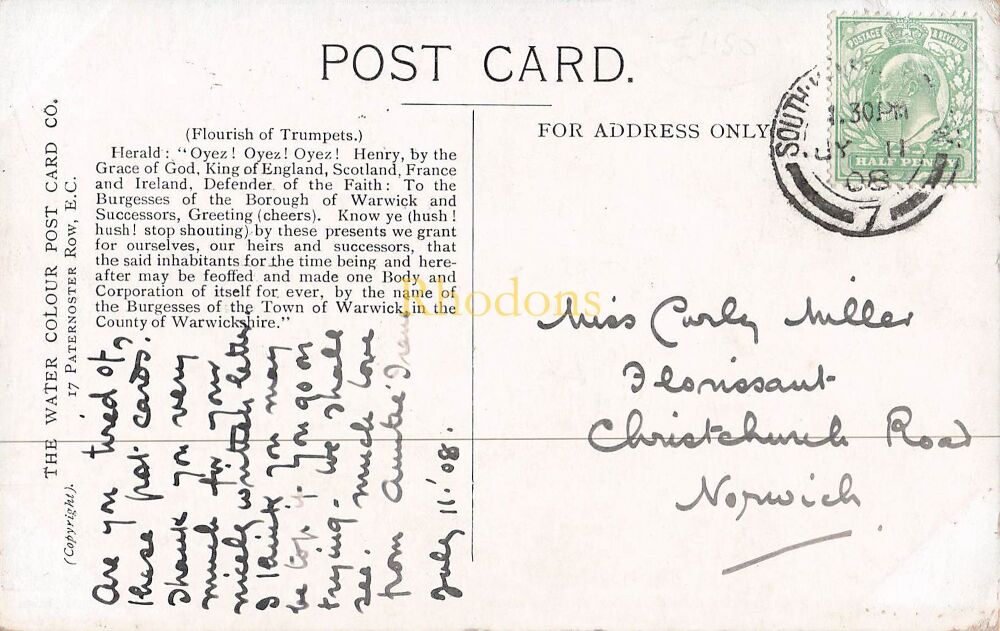 POST CARD.
FOR ADDRESS ONLY
(Flourish of Trumpets.)
Herald : "Oyez! Oyez! Oyez! Henry, by the
Grace of God, King of England, Scotland, France
and Ireland, Defender of the Faith: To the
Burgesses of the Borough of Warwick and
Successors, Greeting (cheers). Know ye (hush!
hush! stop shouting) by these presents we grant
for ourselves, our heirs and successors, that
the said inhabitants for the time being and here-
after may be feoffed and made one Body and
Corporation of itself for ever, by the name of
the Burgesses of the Town of Warwick in the
County of Warwickshire."
THE WATER COLOUR POST CARD CO.
17 PATERNOSTER ROW, E.C.
(Copyright).
Are you tired of
these post cards?
Thank you very
much for your
nicely written letter
I think you may
be top if you go on
trying. We shall
see. Much love
from Auntie Irene
July 11. '08.
Miss Curly Miller
Florissant
Christchurch Road
Norwich
POSTAGE & REVENUE
HALF PENNY
SOUTH
1.30PM
JY 11
08
7
Rhodons